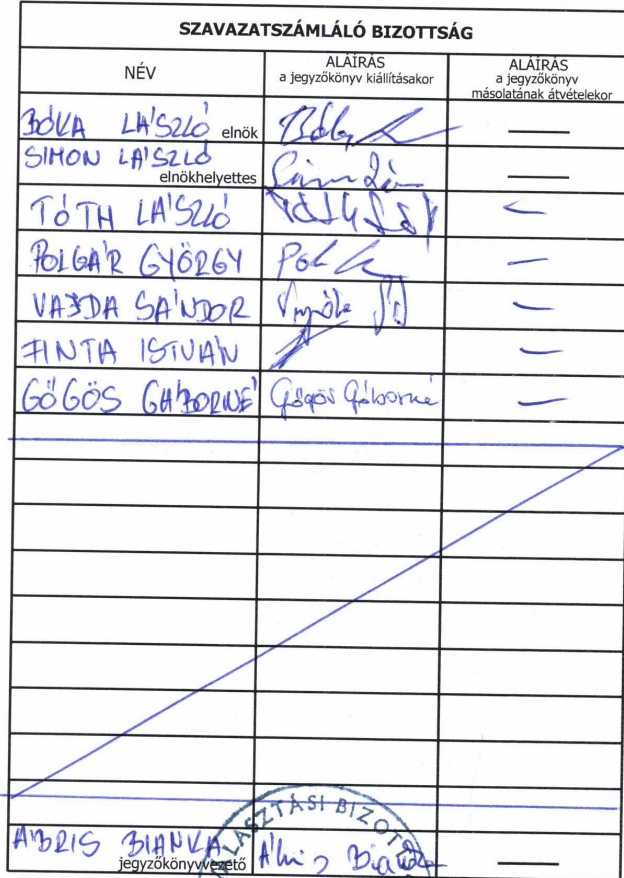 SZAVAZATSZÁMLÁLÓ BIZOTTSÁG
NÉV
ALÁÍRÁS
a jegyzőkönyv kiállításakor
ALÁÍRÁS
a jegyzőkönyv
másolatának átvételekor
BÓKA LÁSZLÓ elnök
SIMON LÁSZLÓ
elnökhelyettes
TÓTH LÁSZLÓ
POLGÁR GYÖRGY
VAJDA SÁNDOR
FINTA ISTVÁN
GÖGÖS GÁBORNÉ Gögös Gáborné
LASZTÁSI BIZOTTS
ÁBRIS BIANKA
jegyzőkönyvvezető